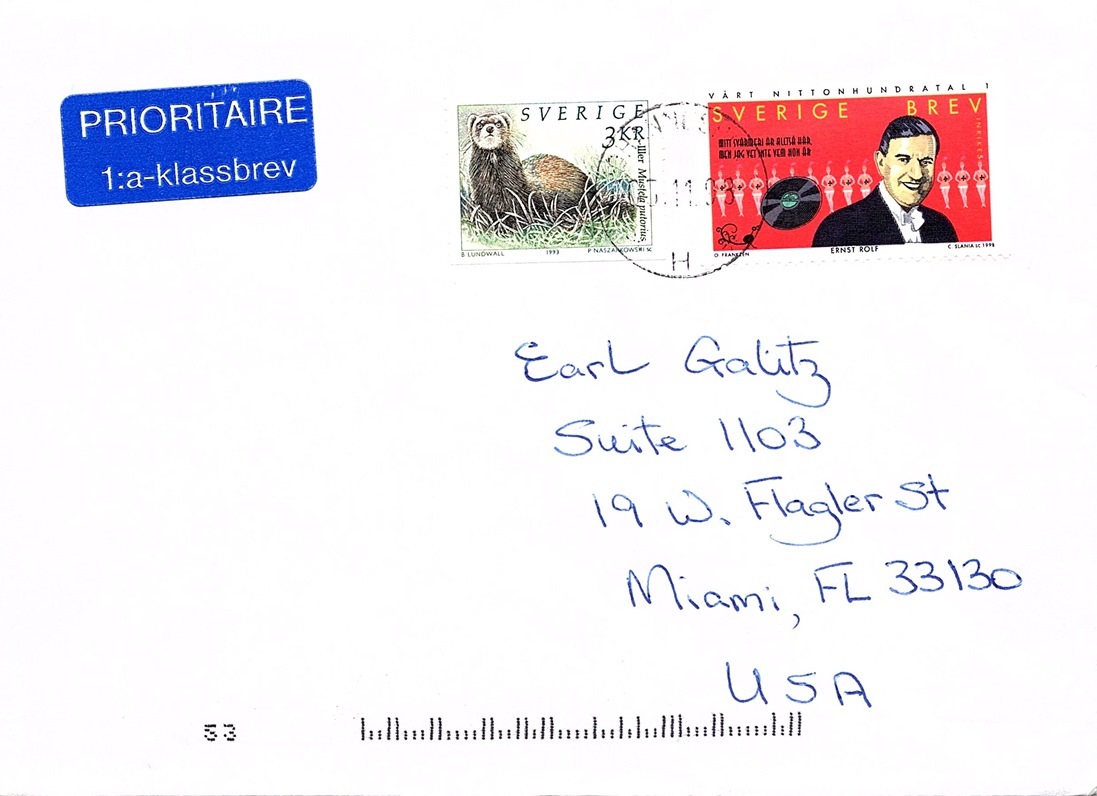 PRIORITAIRE
1:a-klassbrev
SVERIGE
3KR
Iller Mustela putorius
B LUNDWALL 1993 P NASZARKOWSKI SC
11.0
H
VÅRT NITTONHUNDRATAL 1
SVERIGE BREV
INRIKES
MITT SVÄRMERI ÄR ALLTSÅ HÄR,
MEN JAG VET INTE VEM HON ÄR
O FRANZÉN ERNST ROLF C. SLANIA SC 1998
Earl Galitz
Suite 1103
19 W. Flagler St
Miami, FL 33130
USA
53